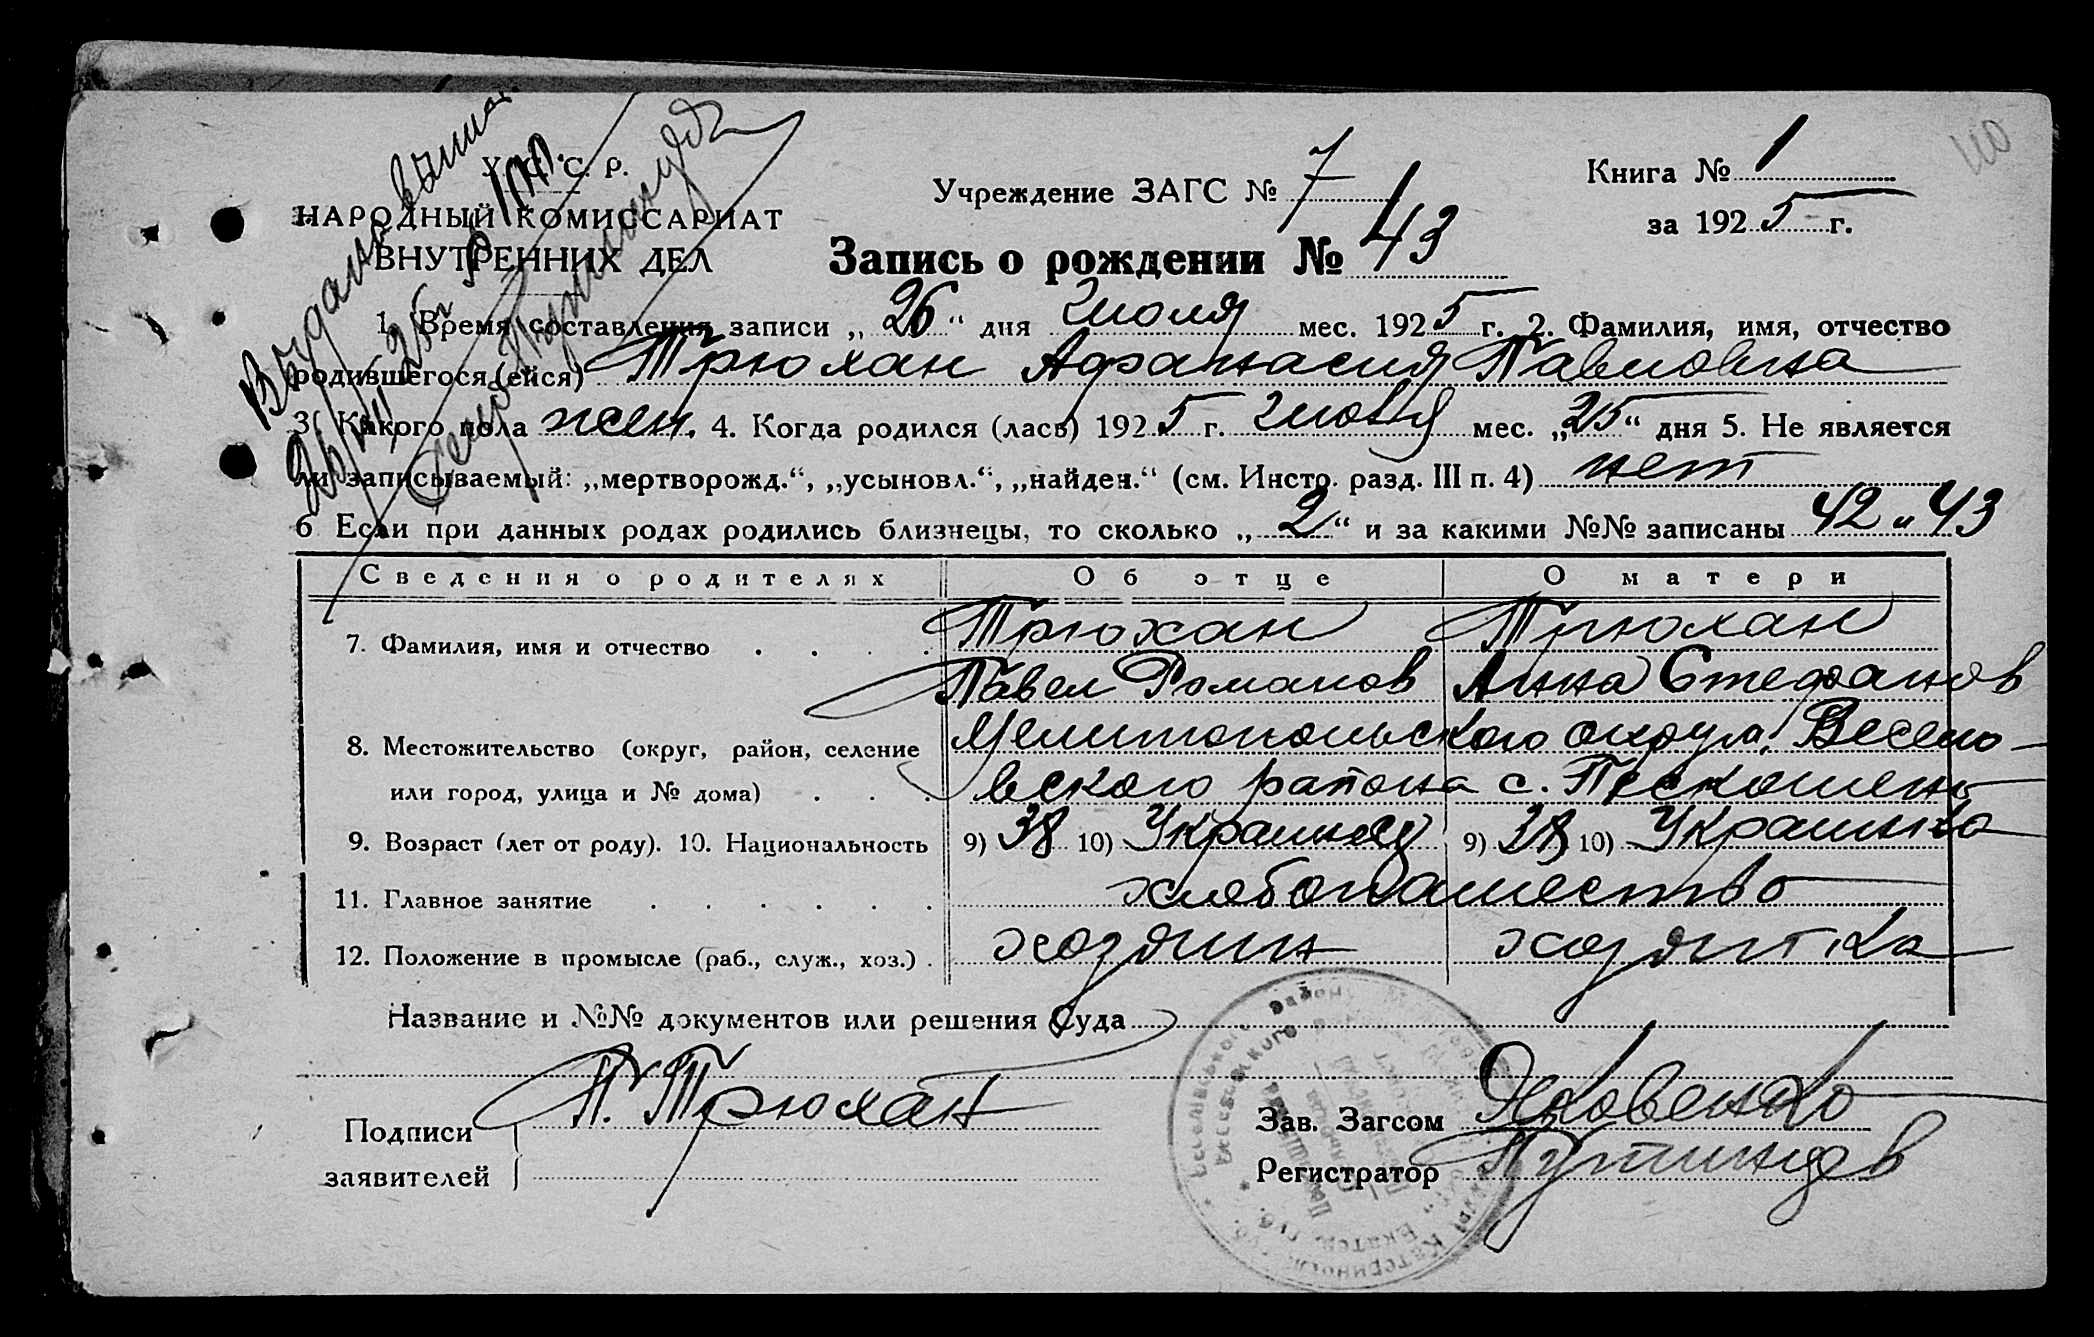 110
У. С. С. Р.
НАРОДНЫЙ КОМИССАРИАТ
ВНУТРЕННИХ ДЕЛ
Учреждение ЗАГС № 7
Книга № 1
за 1925 г.
Запись о рождении № 43
1. Время составления записи „26“ дня Июля мес. 1925 г. 2. Фамилия, имя, отчество
родившегося (ейся) Трюхан Афанасия Павловна
3. Какого пола жен. 4. Когда родился (лась) 1925 г. Июля мес. „25“ дня 5. Не является
ли записываемый: „мертворожд.“, „усыновл.“, „найден.“ (см. Инстр. разд. III п. 4) нет
6 Если при данных родах родились близнецы, то сколько „2“ и за какими №№ записаны 42 и 43
Сведения о родителях Об отце О матери
7. Фамилия, имя и отчество Трюхан Трюхан
Павел Романов Анна Стефанов
8. Местожительство (округ, район, селение Мелитопольского округа, Весело-
или город, улица и № дома) вского района с.
9. Возраст (лет от роду). 10. Национальность 9) 38 10) Украинец 9) 38 10) Украинка
11. Главное занятие хлебопашество
12. Положение в промысле (раб., служ., хоз.) хозяин хозяйка
Название и №№ документов или решения Суда
Подписи П. Трюхан
заявителей
Зав. Загсом Яковенко
Регистратор Путинцев